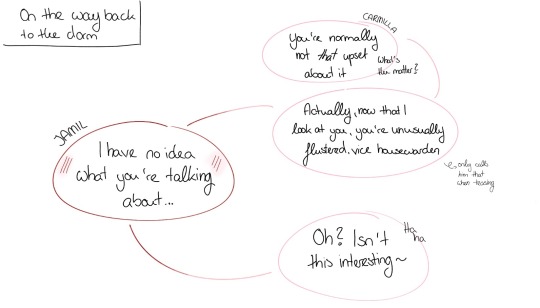 On the way back
to the dorm
CARMILLA
You're normally
not that upset
about it
What's
the matter?
Actually, now that I
look at you, you're unusually
flustered, vice housewarden
only calls
him that
when teasing
JAMIL
I have no idea
what you're talking
about...
Oh? Isn't
this interesting~
Ha
ha